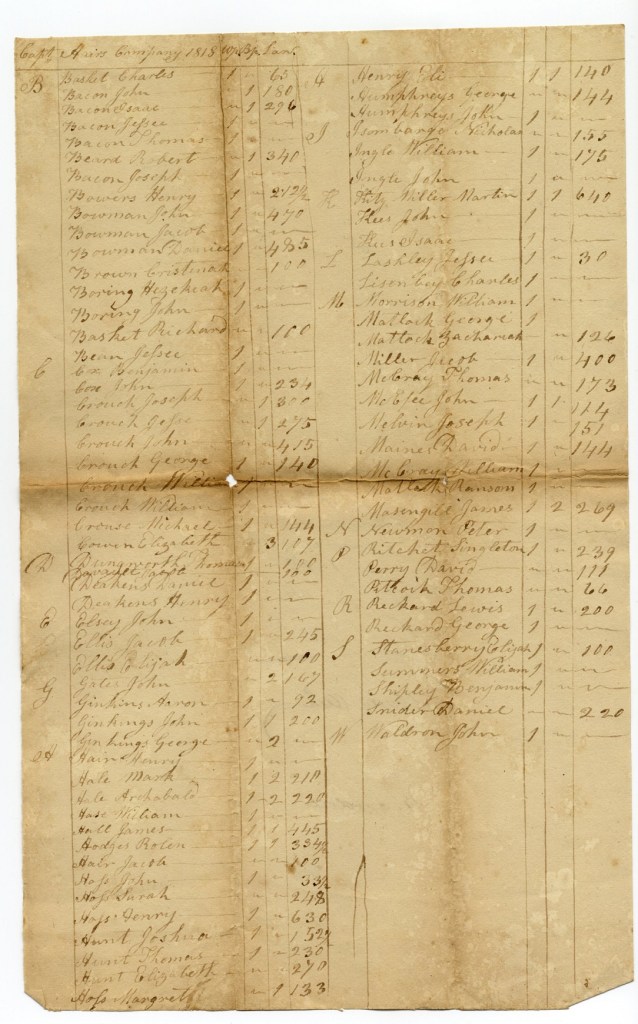 Capt Hairs Company 1818 Wp Bp Lan.
B Basket Charles 1 " 63
Bacon John " 1 180
Bacon Isaac " 1 296
Bacon Jessee " " "
Bacon Thomas 1 " "
Beard Robert " 1 340
Bacon Joseph 1 " "
Bowers Henry 1 " 212½
Bowman John 1 " 470
Bowman Jacob " " "
Bowman Daniel 1 " 485
Brown " " 100
Boring Hezekiah 1 " "
Boring John 1 " "
Basket Richard " " 100
Bean Jessee 1 " "
C Cox Benjamin 1 " "
Cox John " " 234
Crouch Joseph 1 " 1 300
Crouch Jesse " 1 275
Crouch John " " 415
Crouch George 1 " 140
Crouch " "
Crouch William 1 " "
Crouse Michael 1 " 144
Cowen Elizabeth " 3 107
D Dungworth Thomas 1 " 100
100
Deakens Daniel 1 " "
Deakens Henry 1 " "
E Elsey John 1 " "
Ellis Jacob 1 " 245
Ellis Elijah " " 100
G Gates John " 2 167
Ginkins Aaron 1 " 92
Ginkings John 1 1 200
Ginkings George " 2 "
H Hair Henry 1 " "
Hale Mark 1 2 218
Hale Archabald 1 2 220
Hase William 1 " "
Hall James 1 1 445
Hodges Rolen 1 1 334½
Hair Jacob " " 100
Hoss John 1 " 33½
Hoss Sarah " " 248
Hoss Henry 1 " 630
Hunt Joshua 1 " 152½
Hunt Thomas 1 " 230
Hunt Elizabeth " " 270
Hoss Margret " 1 133
Henry Eli 1 1 140
Humphreys George " " 144
Humphreys John 1 " "
I Isombarge Nicholas " " 155
Ingle William 1 " 175
Ingle John 1 " "
K Kitz Miller Martin 1 1 640
Kees John 1 " "
Kees Isaac " " "
L Lashley Jessee 1 " 30
Lisenbey Charles 1 " "
M Morrison William 1 " "
Matlock George 1
Matlock Zachariah 1 " 126
Miller Jacob 1 " 400
McCray Thomas " " 173
McElee John 1 1 114
Melvin Joseph 1 " 151
Maines David 1 " 144
McCray William 1 " "
Matlock Ransom 1 " "
Masengill James 1 2 269
N Newmon Peter 1 " "
P Ritchet Singleton 1 " 239
Perry David " " 111
Thomas " " 66
R Reckard Lewis 1 " 200
Reckard George 1 " "
S Stanesberry Elijah 1 " 100
Summers William 1 " "
Shipley Benjamin 1 " "
Snider Daniel " " 220
W Waldron John 1 " "